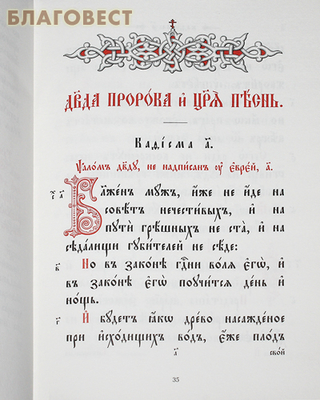 БЛАГОВЕСТ
Дв҃да проро́ка и҆ цр҃ѧ̀ пѣ́снь.
Каѳі́сма а҃.
Ѱало́мъ дв҃дꙋ, не надпи́санъ ᲂу҆ є҆врє́й, а҃.
Бл҃же́нъ мꙋ́жъ, и҆́же не и҆́де на
совѣ́тъ нечести́выхъ, и҆ на
пꙋтѝ грѣ́шныхъ не ста̀, и҆ на
сѣда́лищи гꙋби́телей не сѣ́де:
в҃ Но въ зако́нѣ гдⷭ҇ни во́лѧ є҆гѡ̀, и҆
въ зако́нѣ є҆гѡ̀ поꙋчи́тсѧ де́нь и҆
но́щь.
г҃ И҆ бꙋ́детъ ꙗ҆́кѡ дре́во насажде́ное
при и҆схо́дищихъ во́дъ, є҆́же пло́дъ
а҃ сво́й
35